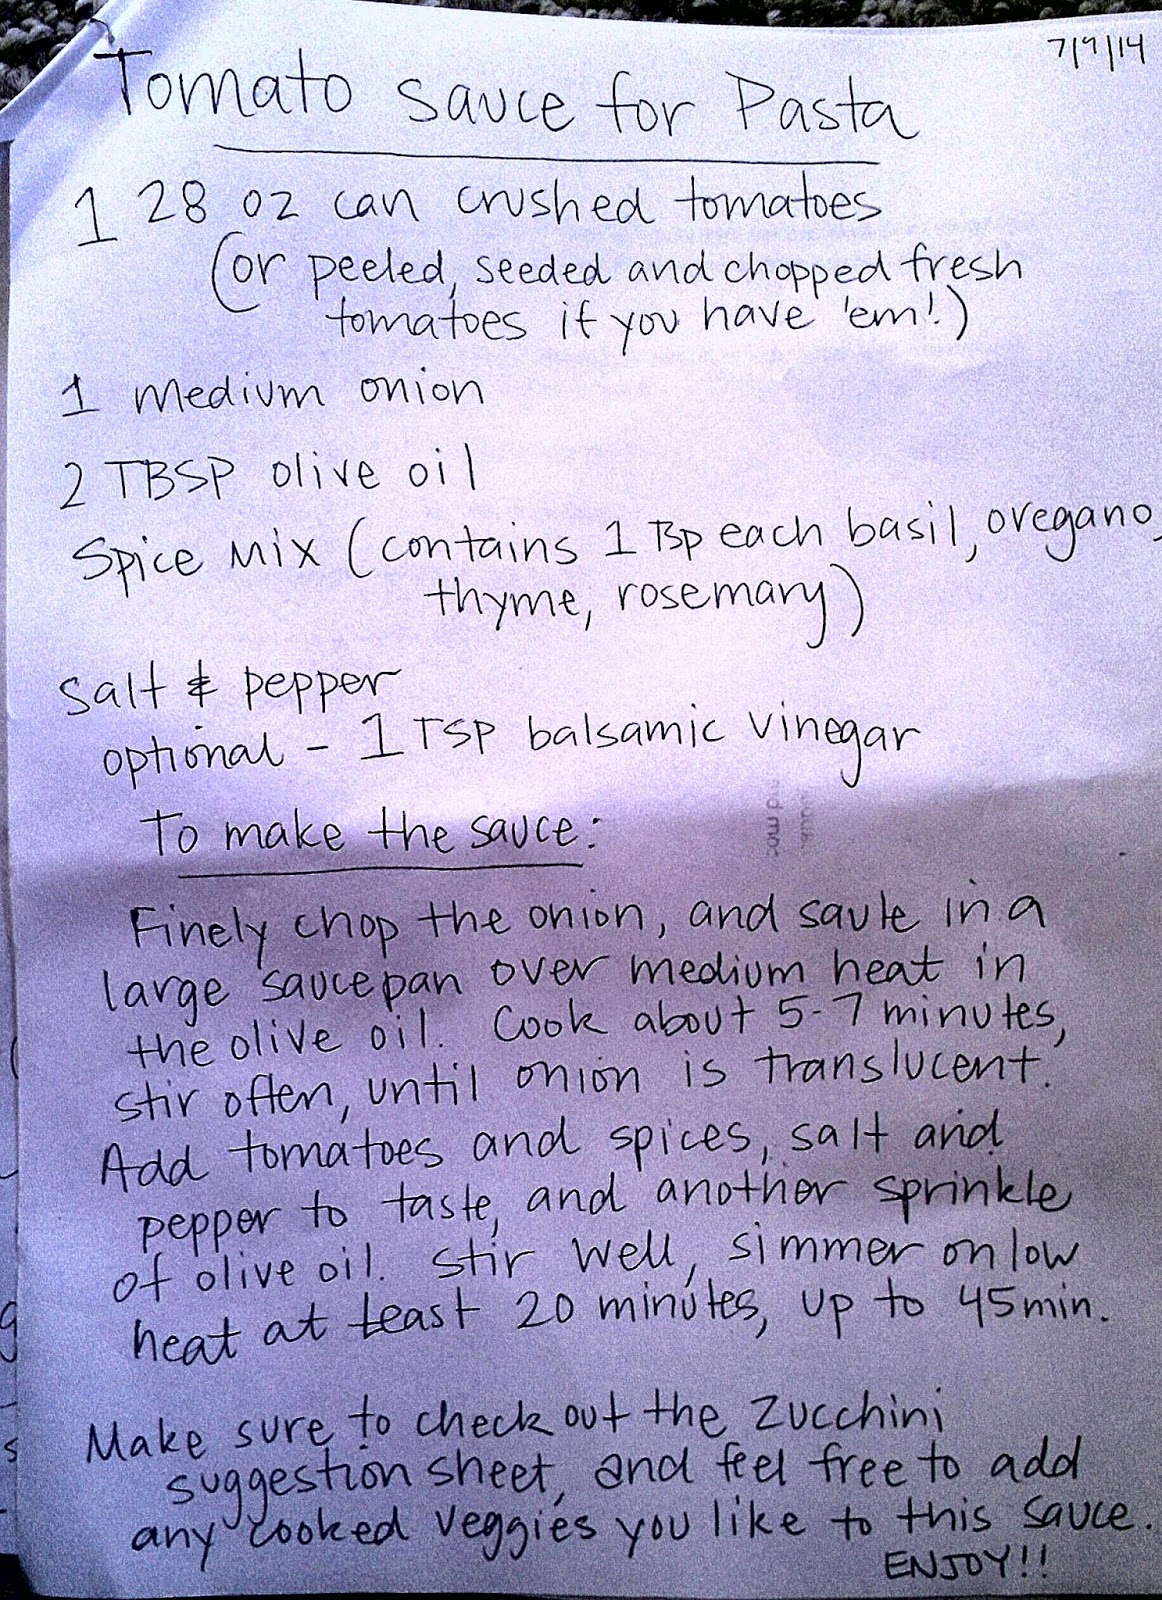 7/9/14
Tomato Sauce for Pasta
1 28 oz can crushed tomatoes
(or peeled, seeded and chopped fresh
tomatoes if you have 'em!)
1 medium onion
2 TBSP olive oil
Spice Mix (contains 1 Tsp each basil, oregano,
thyme, rosemary)
Salt & pepper
optional - 1 TSP balsamic vinegar
To make the sauce:
Finely chop the onion, and saute in a
large saucepan over medium heat in
the olive oil. Cook about 5-7 minutes,
stir often, until onion is translucent.
Add tomatoes and spices, salt and
pepper to taste, and another sprinkle
of olive oil. Stir well, simmer on low
heat at least 20 minutes, up to 45 min.
Make sure to check out the Zucchini
suggestion sheet, and feel free to add
any cooked veggies you like to this sauce.
ENJOY!!